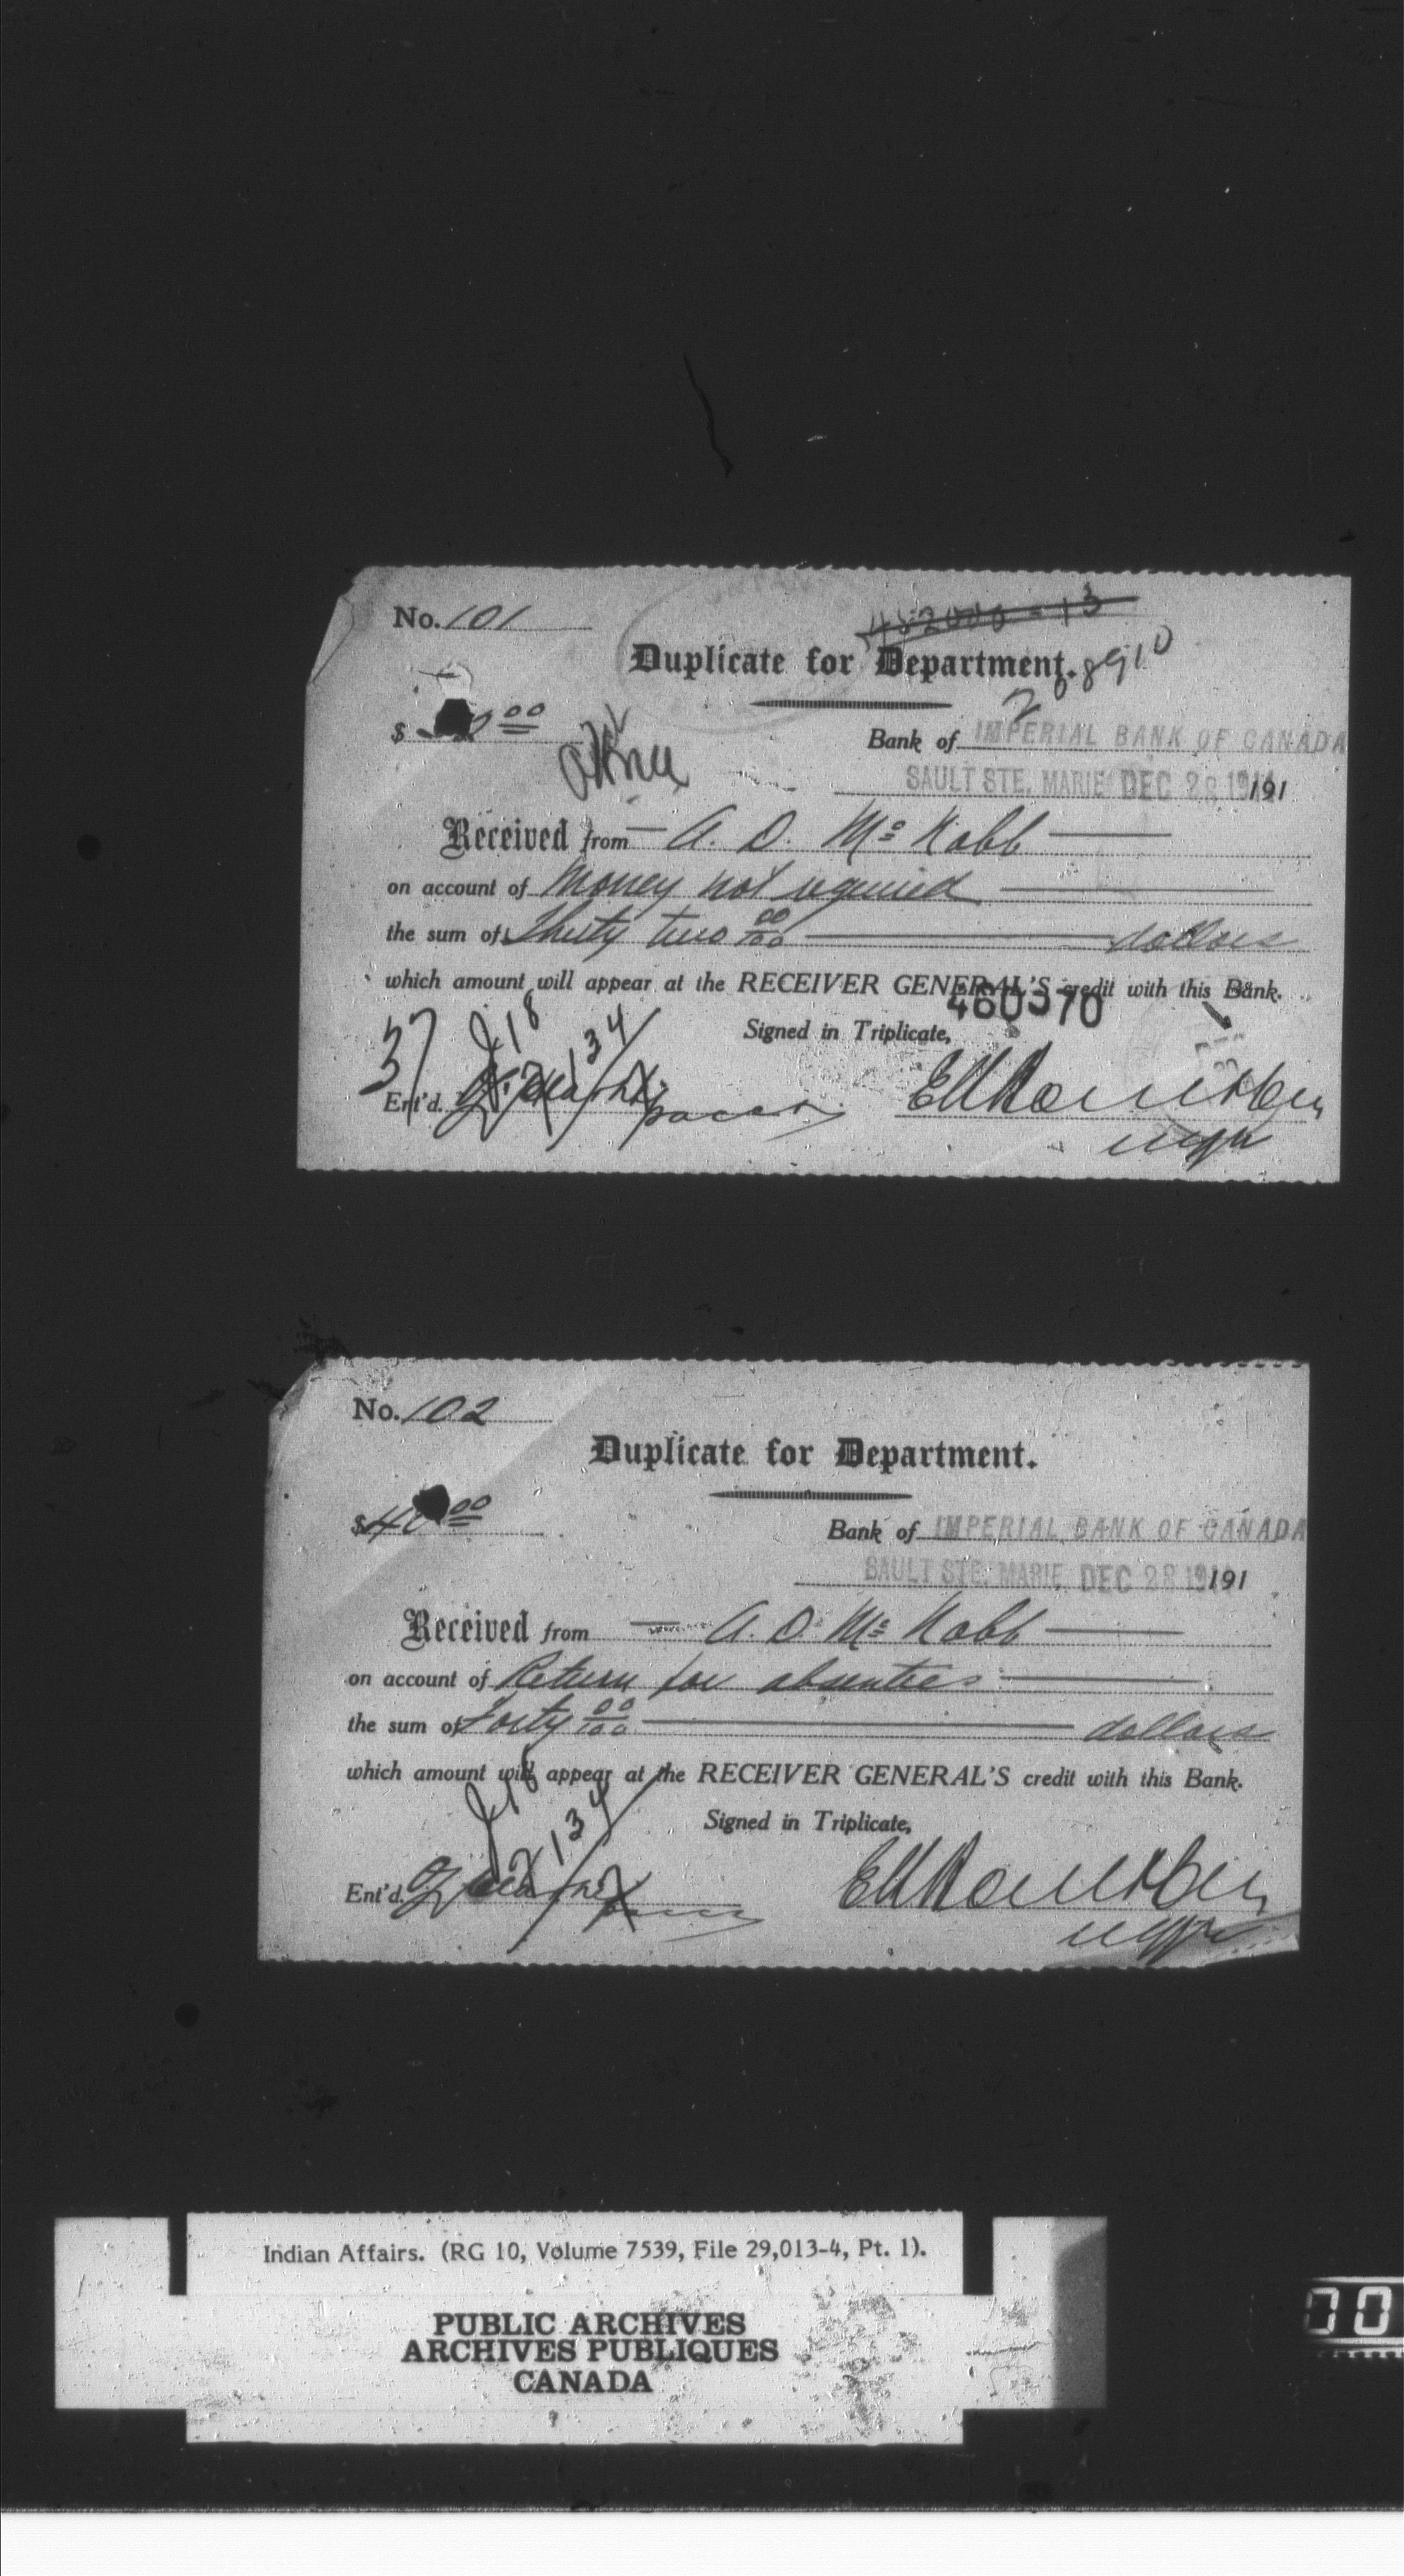 No. 101
482000-13
Duplicate for Department.
$ 00
Bank of IMPERIAL BANK OF CANADA
SAULT STE. MARIE DEC 28 191
Received from A. D. Mc Nabb
on account of Money not required
the sum of Thirty two 00/100 dollars
which amount will appear at the RECEIVER GENERAL'S credit with this Bank.
460370
Signed in Triplicate,
37
J18
134
Ent'd.
mgr
No. 102
Duplicate for Department.
$40 00
Bank of IMPERIAL BANK OF CANADA
SAULT STE. MARIE DEC 28 191
Received from A. D. Mc Nabb
on account of Return for absentees
the sum of Forty 00/100 dollars
which amount will appear at the RECEIVER GENERAL'S credit with this Bank.
Signed in Triplicate,
J18
134
Ent'd.
mgr
Indian Affairs. (RG 10, Volume 7539, File 29,013-4, Pt. 1).
PUBLIC ARCHIVES
ARCHIVES PUBLIQUES
CANADA
00